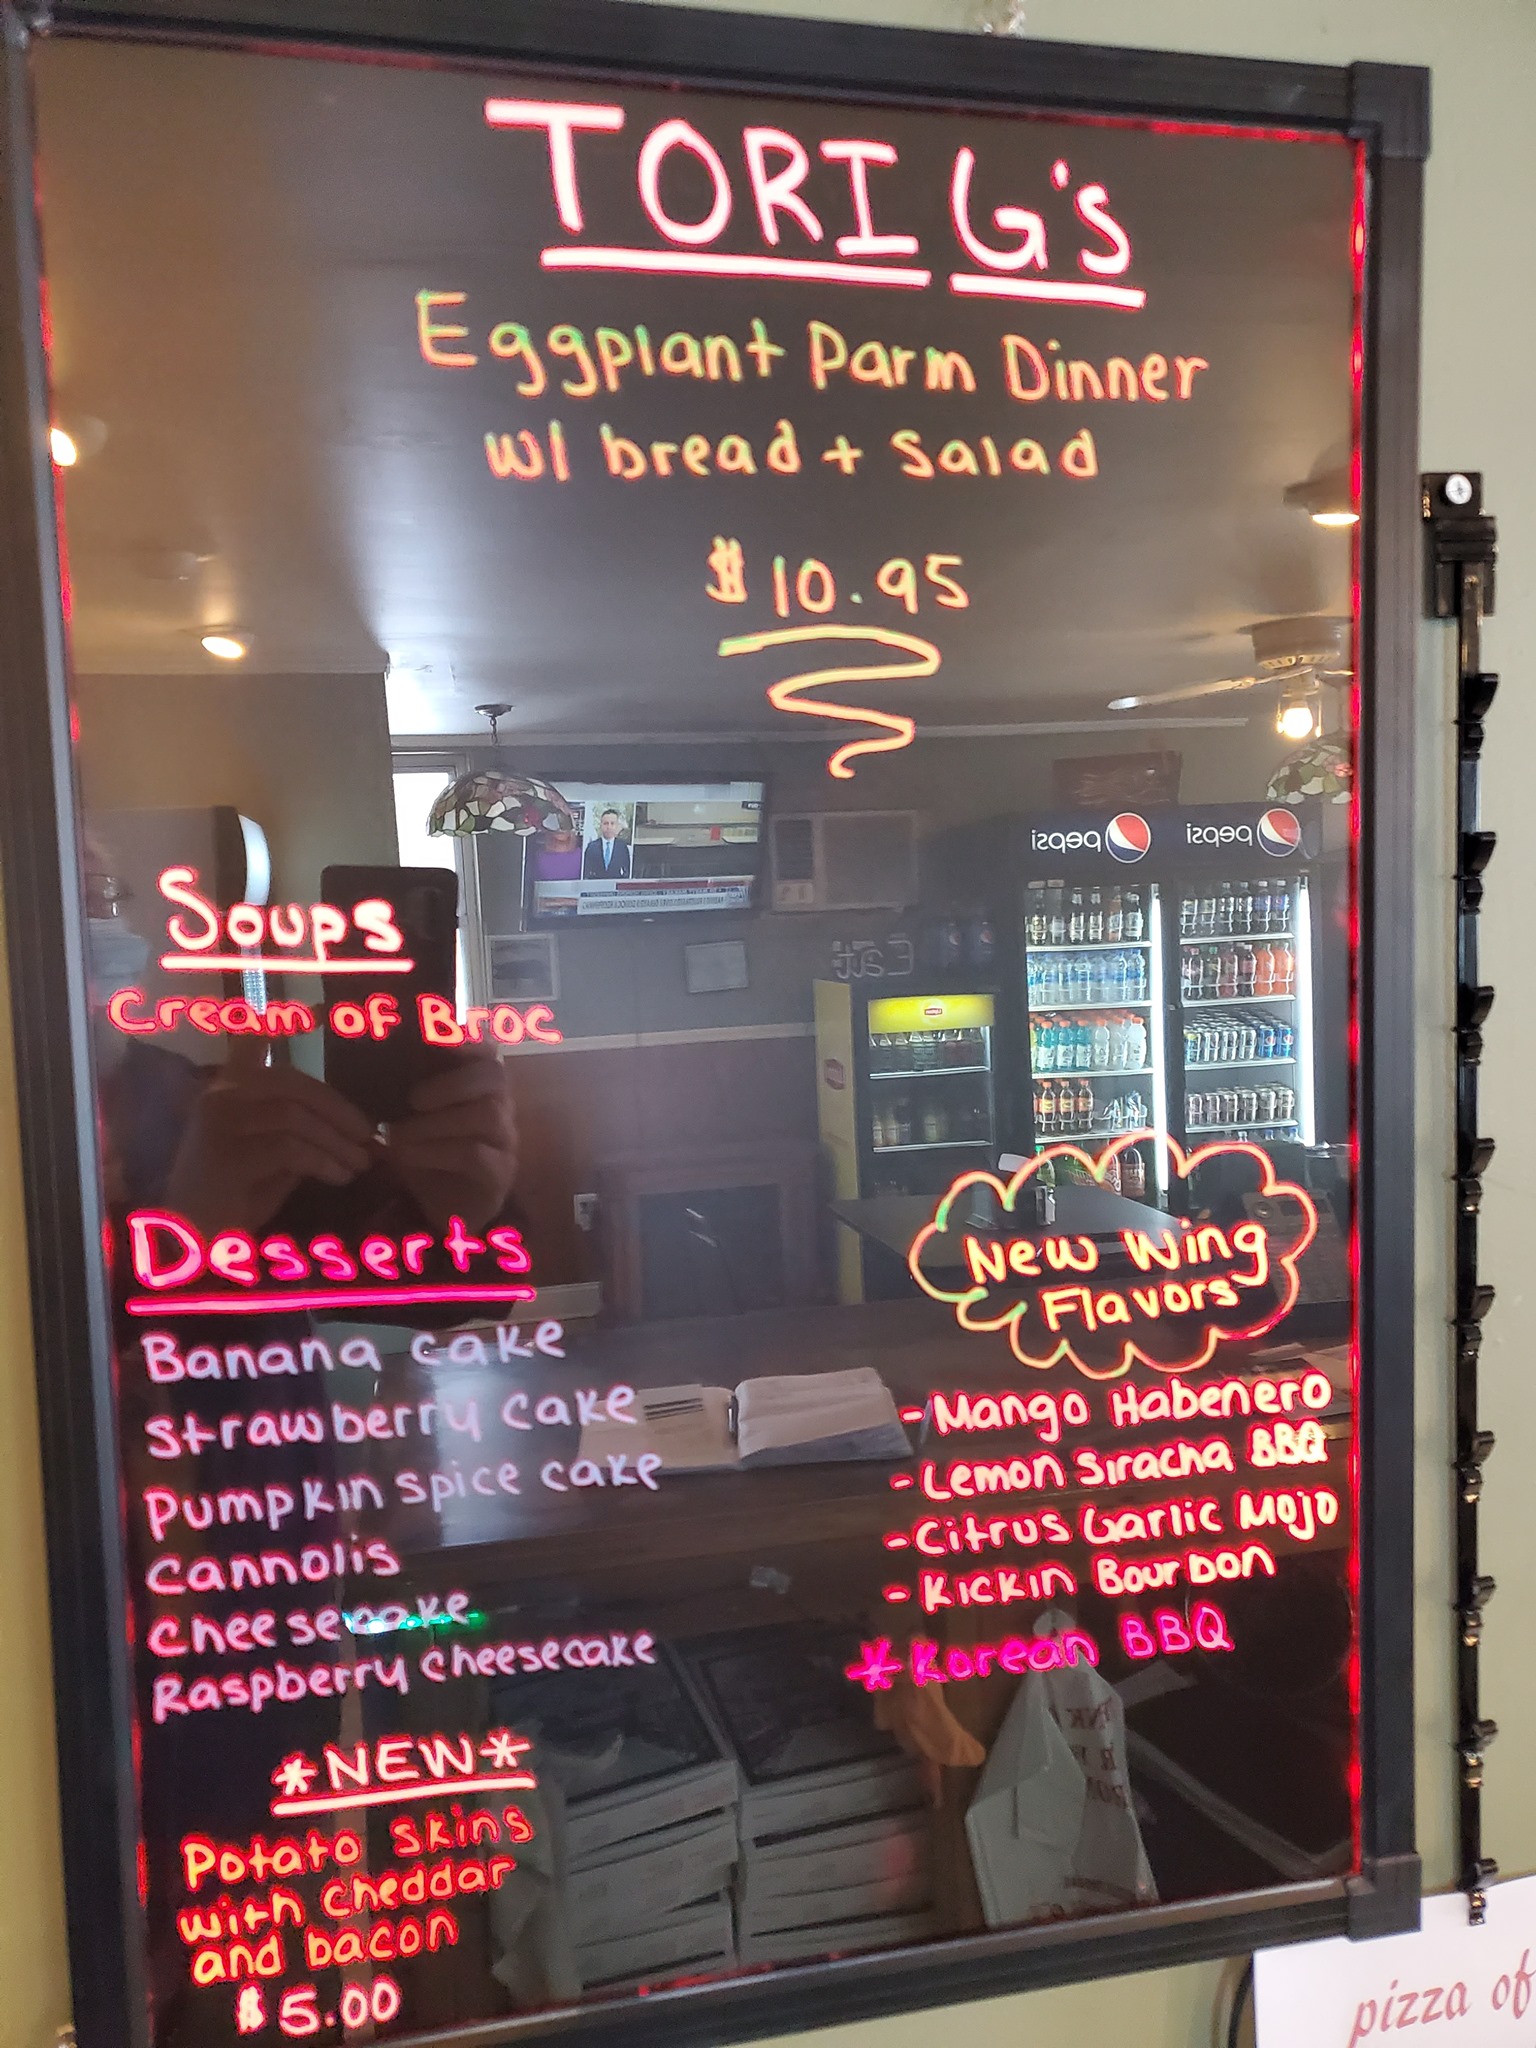 TORI G's
Eggplant Parm Dinner
w/ bread + salad
$10.95
Soups
Cream of Broc
Desserts
Banana cake
Strawberry cake
Pumpkin spice cake
Cannolis
Cheesecake
Raspberry cheesecake
*NEW*
Potato skins
with cheddar
and bacon
$5.00
New Wing
Flavors
- Mango Habenero
- Lemon Siracha BBQ
- Citrus Garlic Mojo
- Kickin Bourbon
* Korean BBQ
pepsi
pepsi
Eat
pizza of